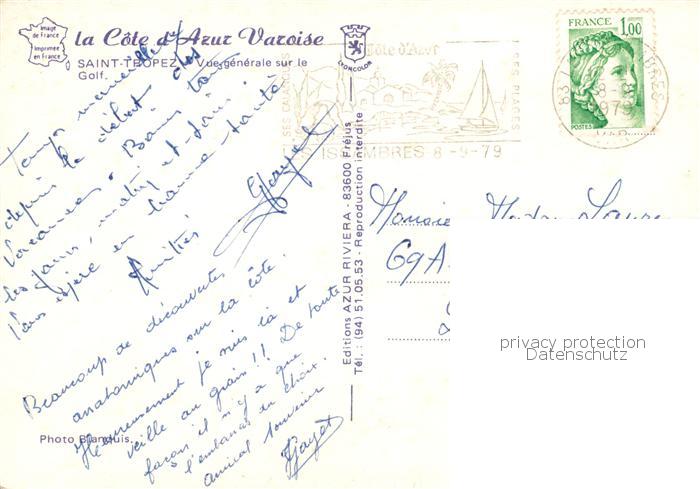 Image
de France
Imprimée
en France
la Côte d'Azur Varoise
SAINT-TROPEZ - Vue générale sur le
Golf.
LYONCOLOR
Temps merveilleux
depuis le début des
vacances. Bains tous
les jours, matin et soir.
Vous espère en bonne santé
Amitiés
Beaucoup de découvertes
anatomiques sur la côte.
Heureusement je suis là et
veille au grain !! De toute
façon il n'y a que
l'embarras du choix.
amical souvenir
Photo Blanquis.
Editions AZUR RIVIERA - 83600 Fréjus
Tél.: (94) 51.05.53 - Reproduction interdite
Côte d'Azur
SES CALANQUES
SES PLAGES
ISSAMBRES 8-9-79
FRANCE 1,00
POSTES
8-9
1979
Monsieur Madame
69A
privacy protection
Datenschutz